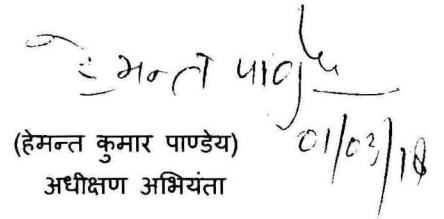 हेमन्त पाण्डे
01/03/18
(हेमन्त कुमार पाण्डेय)
अधीक्षण अभियंता